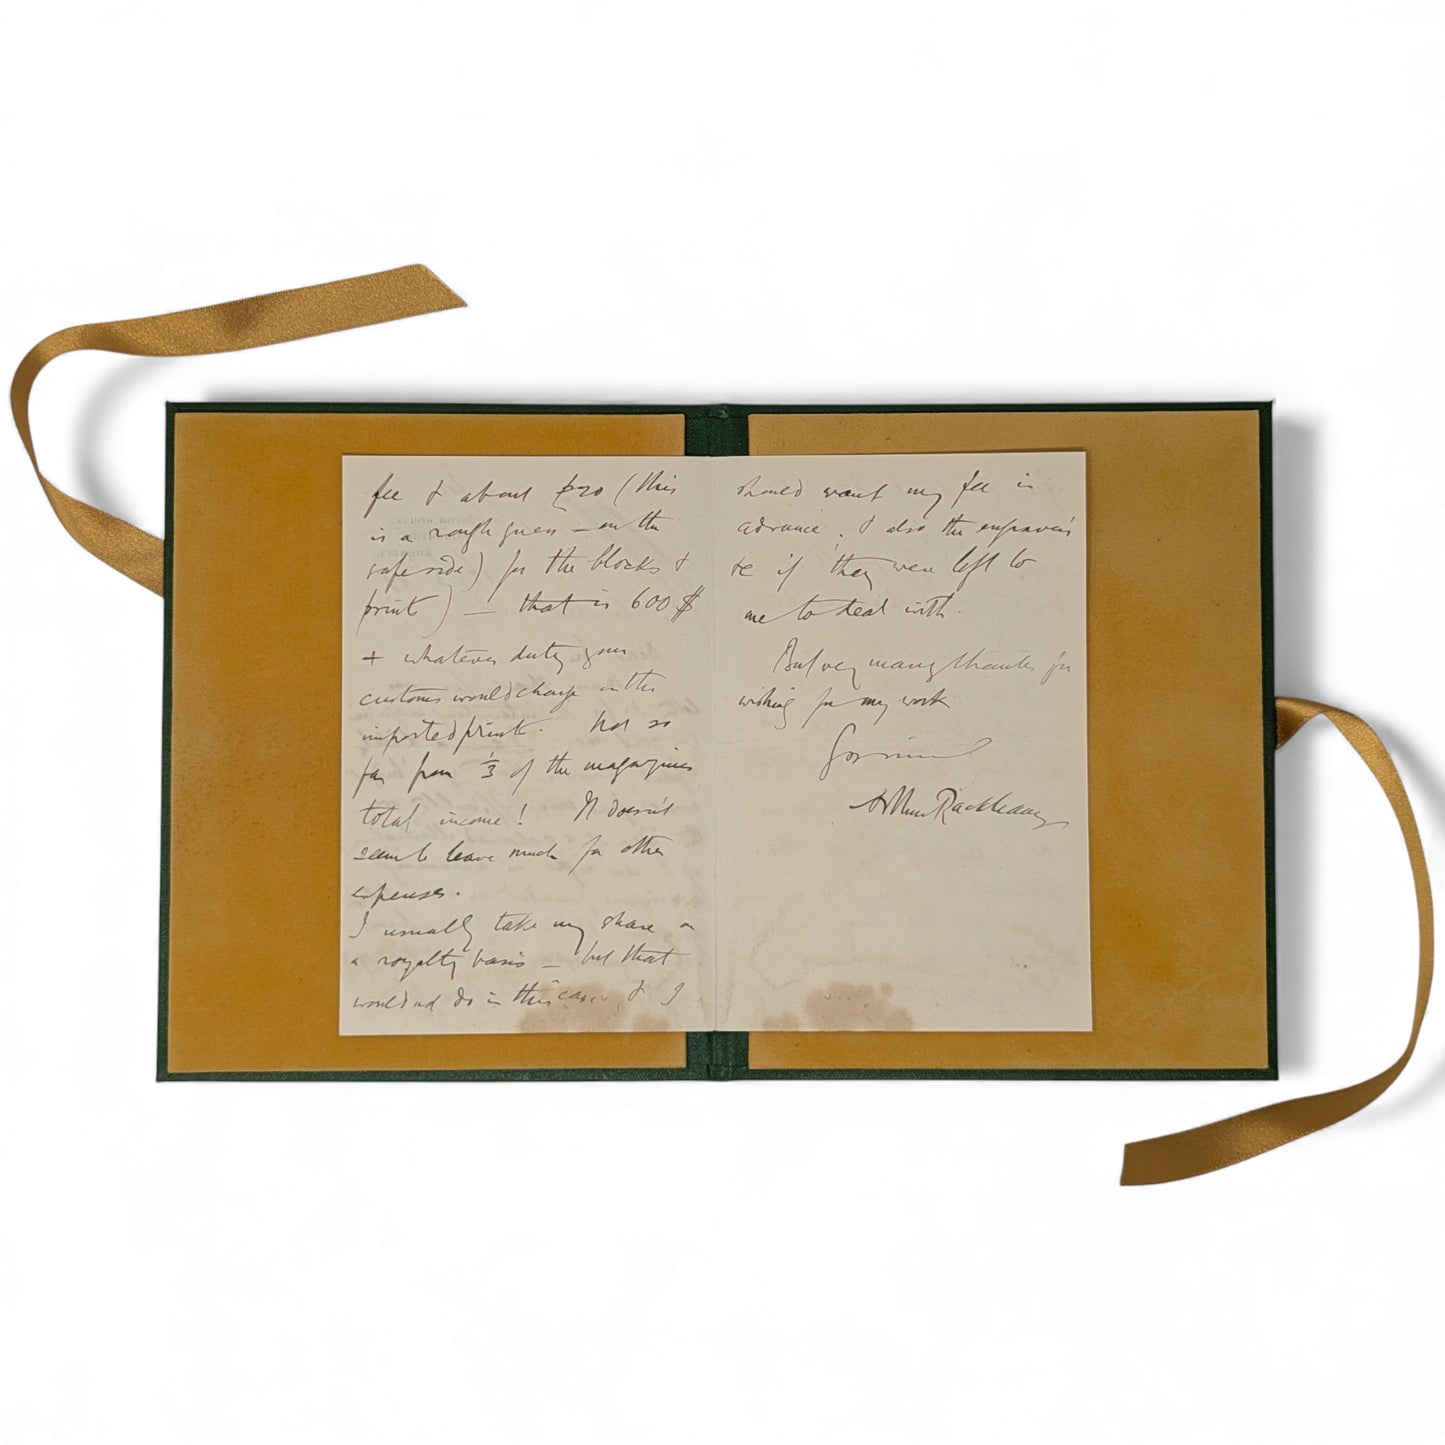 fee & about £20 (this
is a rough guess – on the
safe side) for the blocks &
prints) – that is 600 $
+ whatever duty your
customs would charge on the
imported prints. Not so
far from 1/3 of the magazines
total income! It doesn't
seem to leave much for other
expenses.
I usually take my share on
a royalty basis – but that
would not do in this case, & I
should want my fee in
advance, & also the engraver's
 if they were left to
me to deal with.
But very many thanks for
wishing for my work
Arthur Rackham